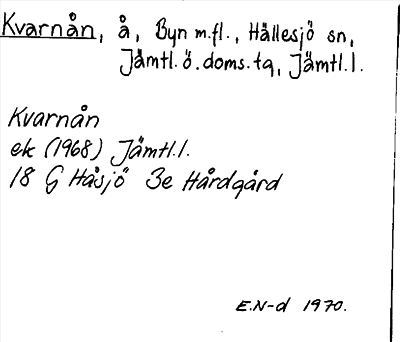 Kvarnån, å, Byn m.fl., Hällesjö sn,
Jämtl.ö.doms.tg, Jämtl.l.
Kvarnån
ek (1968) Jämtl.l.
18 G Håsjö 3e Hårdgård
E.N-d 1970.